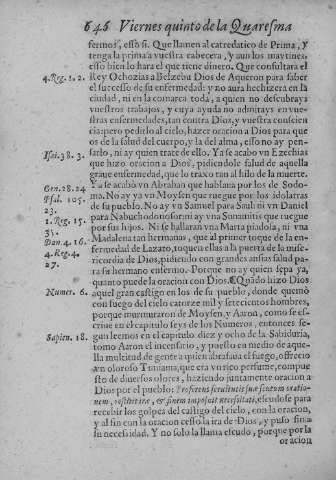 646 Viernes quinto de la Quaresma
fermos, esso si. Que llamen al catredatico de Prima, y
tenga la prima a vuestra cabecera, y aun los maytines,
esso bien lo hara el que tiene dinero. Que consultara el
4. Reg. 1. 2. Rey Ochozias a Belzebu Dios de Aqueron para saber
el successo de su enfermedad: y no aura hechizera en la
ciudad, ni en la comarca toda, a quien no descubrays
vuestros trabajos, y cuya ayuda no admitays en vuestras
enfermedades, tan contra Dios, y vuestra conscien
cia: pero pedirlo al cielo, hazer oracion a Dios para que
os de la salud del cuerpo, y la del alma, esso no ay pen-
Isai. 38. 3. sarlo, ni ay quien trate de ello. Ya se acabò vn Ezechias
que hizo oracion a Dios, pidiendole salud de aquella
graue enfermedad, que lo traxo tan al hilo de la muerte.
Gen. 18. 24 Ya se acabò vn Abrahan que hablaua por los de Sodo-
Psal. 105. ma. No ay ya vn Moysen que ruegue por los idolatras
23. de su pueblo. No ay vn Samuel para Saul ni vn Daniel
1. Reg. 15. para Nabuchodonosor: ni ay vna Sunamitis que ruegue
35. por sus hijos. Ni se hallaran vna Marta piadola, ni vna
Dan. 4. 16. Madalena tan hermanas, que al primer toque de la en-
4. Reg. 4. fermedad de Lazaro, toquen ellas a la puerta de la mise-
27. ricordia de Dios, pidiendo con grandes ansias salud pa-
ra su hermano enfermo. Porque no ay quien sepa ya,
quanto puede la oracion con Dios. Quando hizo Dios
Numer. 6. aquel gran castigo en los de su pueblo, donde quemò
con fuego del cielo catorze mil y setecientos hombres,
porque murmuraron de Moysen, y Aaron, como se es-
criue en el capitulo seys de los Numeros, entonces se-
Sapien. 18. gun leemos en el capitulo diez y ocho de la Sabiduria,
tomo Aaron el incensario, y puesto en medio de aque-
lla multitud de gente a quien abrasaua el fuego, offrecio
vn oloroso Tuniama, que era vn rico perfume, compue
sto de diuersos olores, haziendo juntamente oracion a
Dios por el pueblo: Proferens seruitutis suæ scutum oratio-
nem, restitit iræ, & finem imposuit necessitati, escudose para
recebir los golpes del castigo del cielo, con la oracion,
y al fin con la oracion cesso la ira de Dios, y puso fin a
su necessidad. Y no solo la llama escudo, porque por la
oracion